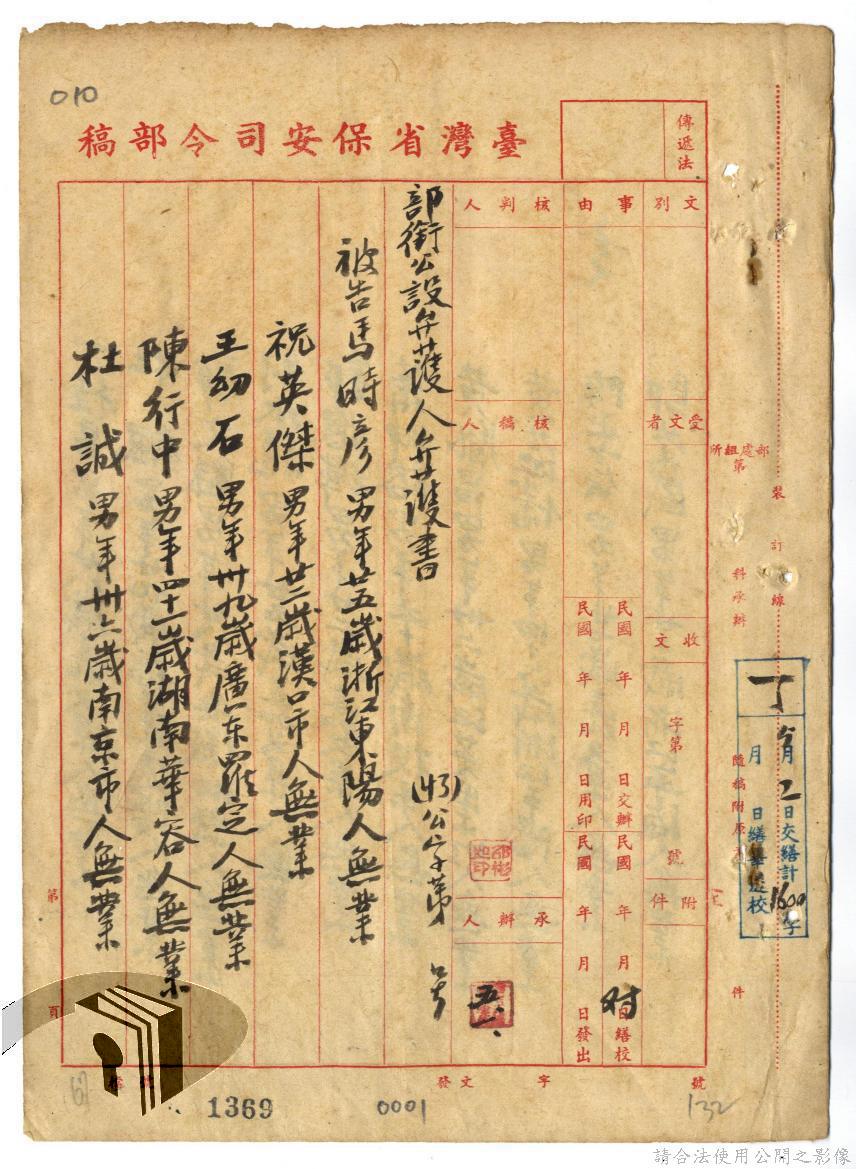 010
臺灣省保安司令部稿
傳遞法
文別
事由
核判人
受文者
核稿人
收文
字第
號
附件
民國 年 月 日交辦
民國 年 月 日繕校
民國 年 月 日用印
民國 年 月 日發出
承辦人
五、
部處組所
第
科承辦
隨稿附原
件
裝
訂
線
月 2 日交繕計1600字
月 日繕畢送校
部銜公設辯護人辯護書
(43)公字第 號
被告馬時彥男年廿五歲浙江東陽人無業
祝英傑男年廿二歲漢口市人無業
王幼石男年卅九歲廣東羅定人無業
陳行中男年四十一歲湖南華容人無業
杜誠男年卅六歲南京市人無業
第
頁
發文
字
號
1369
0001
132
請合法使用公開之影像